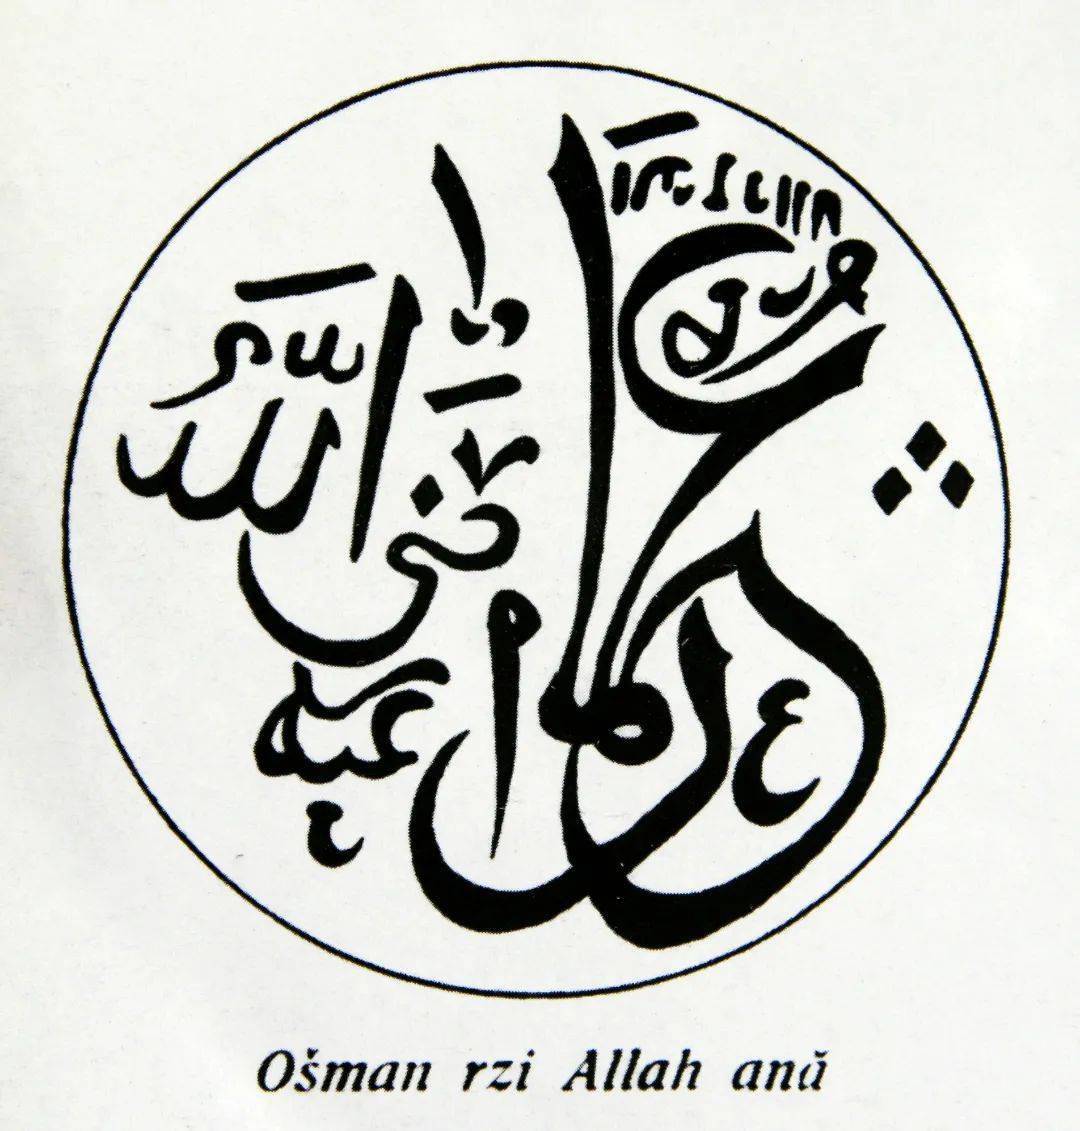 عثمان رضى الله عنه
Ošman rzi Allah ană